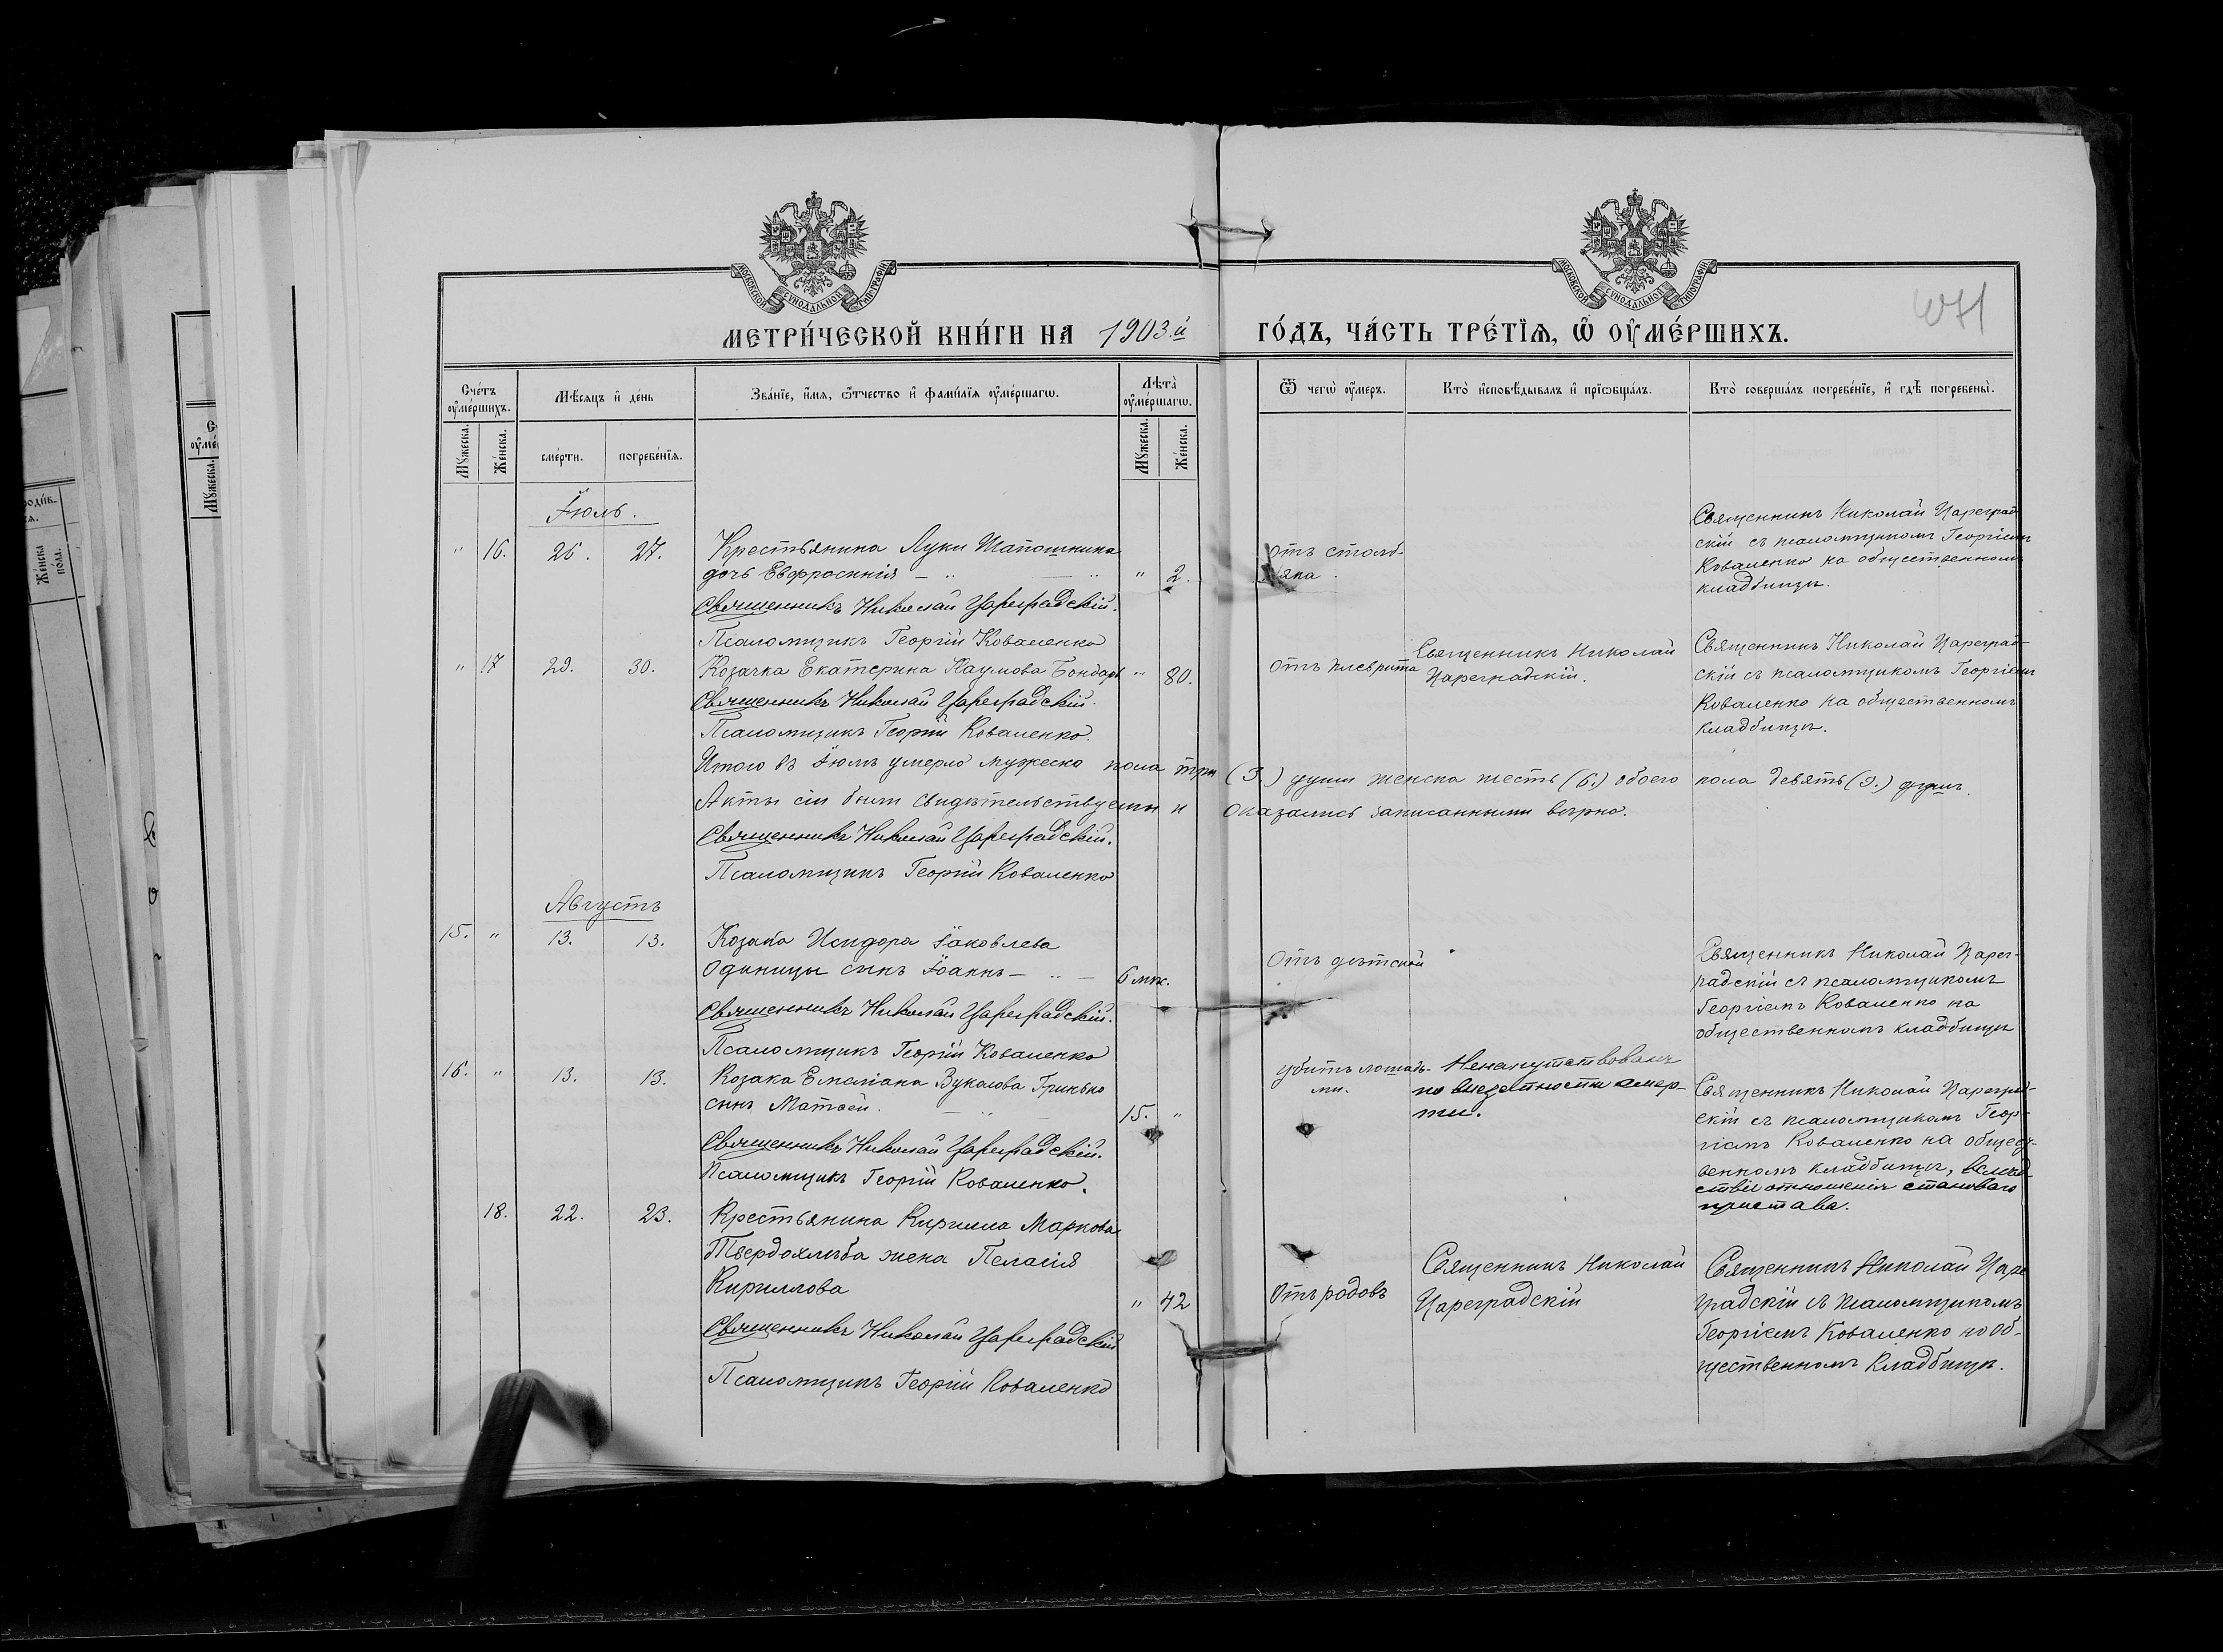 МОСКОВСКОЙ СУНОДАЛЬНОЙ ТИПОГРАФІИ
МОСКОВСКОЙ СУНОДАЛЬНОЙ ТИПОГРАФІИ
МЕТРИ́ЧЕСКОЙ КНИ́ГИ НА 1903.й
ГО́ДЪ, ЧА́СТЬ ТРЕ́ТІѦ, Ѡ ОУМЕ́РШИХЪ.
Сче́тъ оуме́ршихъ.
Мѣ́сяцъ и де́нь
Зва́ніе, и́мѧ, ѻ́тчество и фами́лїѧ оуме́ршагѡ.
Лѣ́та оуме́ршагѡ.
Ѿ чегѡ̀ оу́меръ.
Кто̀ и҆сповѣ́дывалъ и҆ прїѡбща́лъ.
Кто̀ соверша́лъ погребе́нїе, и҆ гдѣ̀ погребены̀.
Мꙋжеска.
Же́нска.
сме́рти.
погребе́нїѧ.
Мꙋжеска.
Же́нска.
Іюль.
" 16. 26. 27. Крестьянина Луки Шапошника
дочь Евфросинія — " — " " 2.
Священникъ Николай Цареградскій.
Псаломщикъ Георгій Коваленко
отъ столб-
няка.
Священникъ Николай Цареград-
скій съ псаломщикомъ Георгіемъ
Коваленко на общественномъ
кладбищѣ.
" 17 29. 30. Козачка Екатерина Наумова Бондарь " 80.
Священникъ Николай Цареградскій.
Псаломщикъ Георгій Коваленко.
отъ плеврита
Священникъ Николай
Цареградскій.
Священникъ Николай Цареград-
скій съ псаломщикомъ Георгіемъ
Коваленко на общественномъ
кладбищѣ.
Итого въ Іюлѣ умерло мужеска пола три (3.) души женска шесть (6.) обоего пола девять (9.) душъ.
Акты сіи были свидѣтельствуемы и оказались записанными вѣрно.
Священникъ Николай Цареградскій.
Псаломщикъ Георгій Коваленко
Августъ
15. " 13. 13. Козака Исидора Іаковлева
Одиницы сынъ Іоаннъ — " — 6 мѣс.
Священникъ Николай Цареградскій.
Псаломщикъ Георгій Коваленко
Отъ дѣтской
Священникъ Николай Царег-
радскій съ псаломщикомъ
Георгіемъ Коваленко на
общественномъ кладбищѣ
16. " 13. 13. Козака Емеліана Вуколова Гринько
сынъ Матѳей. — " — 15. "
Священникъ Николай Цареградскій.
Псаломщикъ Георгій Коваленко.
убитъ лошадь-
ми.
Ненапутствованъ
по внезапности смер-
ти.
Священникъ Николай Цареград-
скій съ псаломщикомъ Геор-
гіемъ Коваленко на общест-
венномъ кладбищѣ, вслѣд-
ствіе отношенія становаго
пристава.
18. 22. 23. Крестьянина Кирилла Маркова
Твердохлѣба жена Пелагія
Кириллова " 42
Священникъ Николай Цареградскій
Псаломщикъ Георгій Коваленко
Отъ родовъ
Священникъ Николай
Цареградскій
Священникъ Николай Царе
градскій съ псаломщикомъ
Георгіемъ Коваленко на об-
щественномъ кладбищѣ.